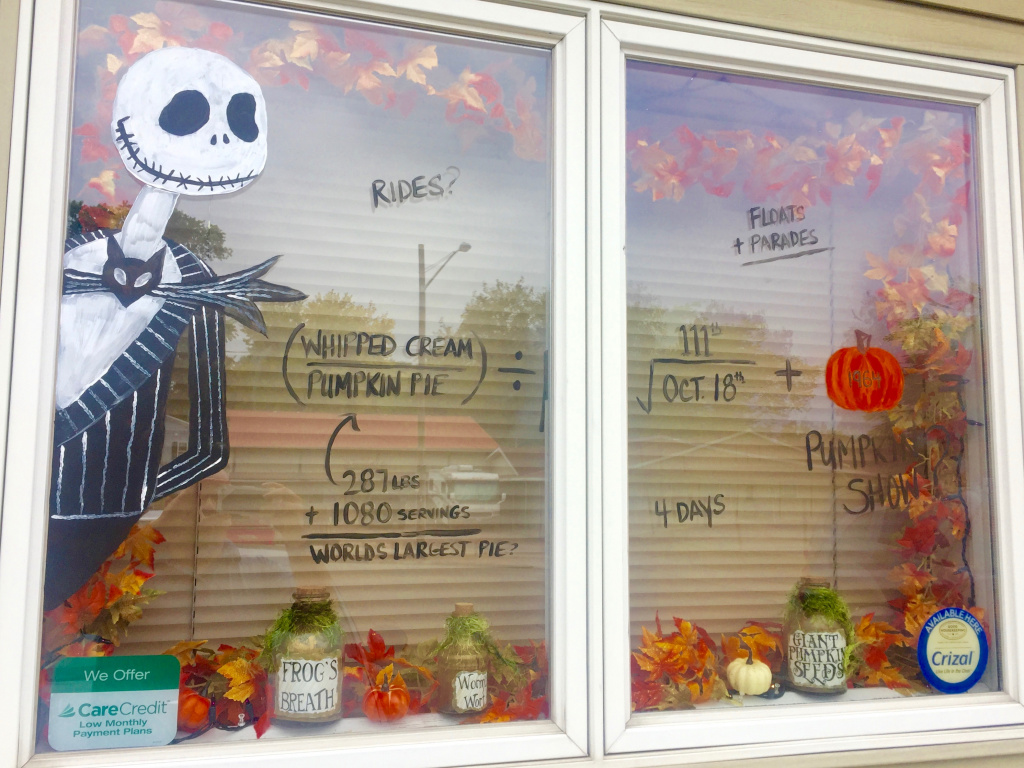 RIDES?
(WHIPPED CREAM
PUMPKIN PIE) ÷
287 LBS
+ 1080 SERVINGS
WORLDS LARGEST PIE?
FLOATS
+ PARADES
111th
√OCT. 18th +
PUMPKIN
SHOW
4 DAYS
FROG'S
BREATH
GIANT
PUMPKIN
SEEDS
We Offer
CareCredit
Low Monthly
Payment Plans
AVAILABLE HERE
Crizal